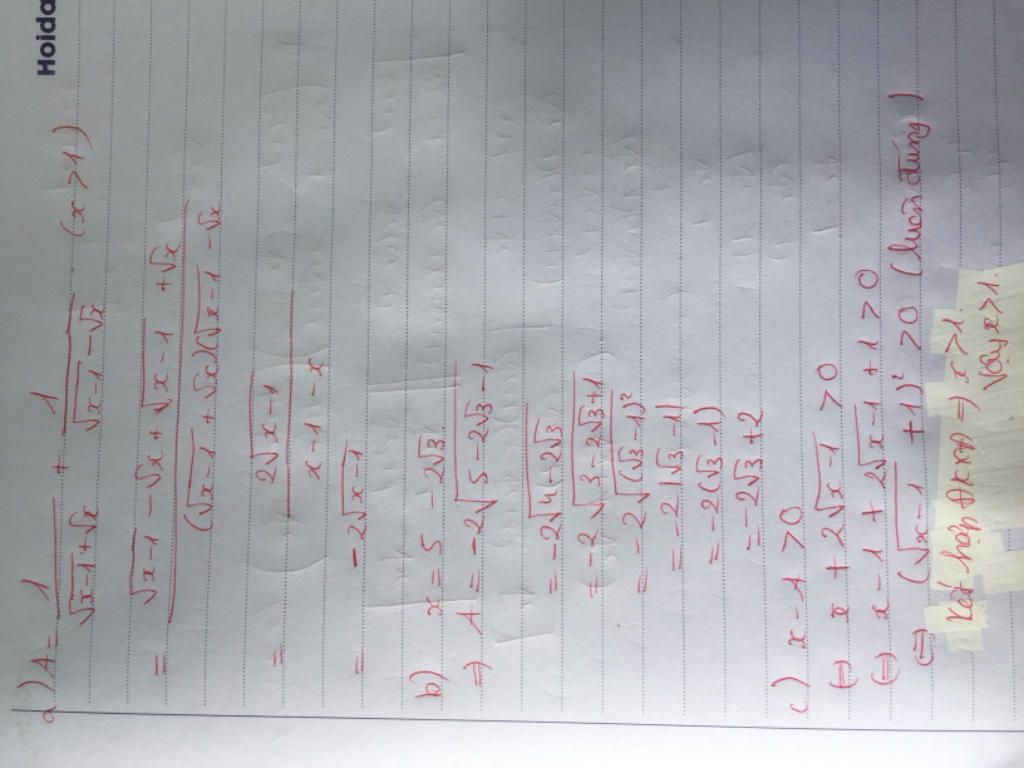 Hoida
a) A = 1/(√(x-1) + √x) + 1/(√(x-1) - √x) (x > 1)
= (√(x-1) - √x + √(x-1) + √x)/((√(x-1) + √x)(√(x-1) - √x
= 2√(x-1)/(x-1-x)
= -2√(x-1)
b) x = 5 - 2√3
⇒ A = -2√(5-2√3-1)
= -2√(4-2√3)
= -2√(3-2√3+1)
= -2√((√3-1)²)
= -2|√3-1|
= -2(√3-1)
= -2√3+2
c) x - A > 0
⇔ x + 2√(x-1) > 0
⇔ x - 1 + 2√(x-1) + 1 > 0
⇔ (√(x-1) + 1)² > 0 (luôn đúng)
Kết hợp ĐKXĐ ⇒ x > 1.
Vậy x > 1.